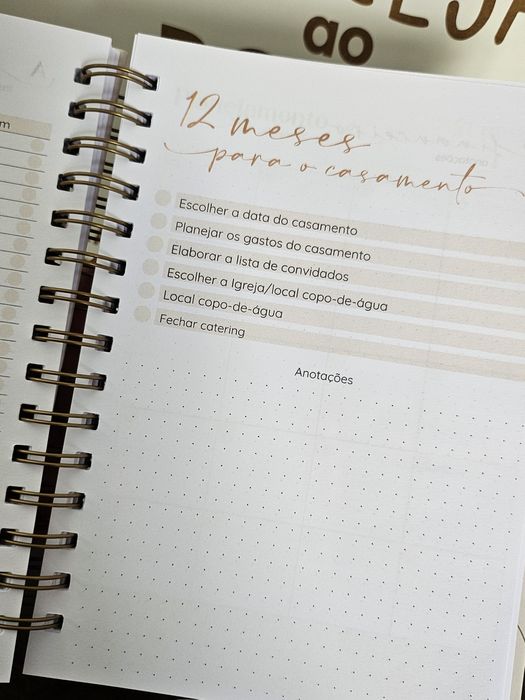 ao
12 meses
para o casamento
Escolher a data do casamento
Planejar os gastos do casamento
Elaborar a lista de convidados
Escolher a Igreja/local copo-de-água
Local copo-de-água
Fechar catering
Anotações